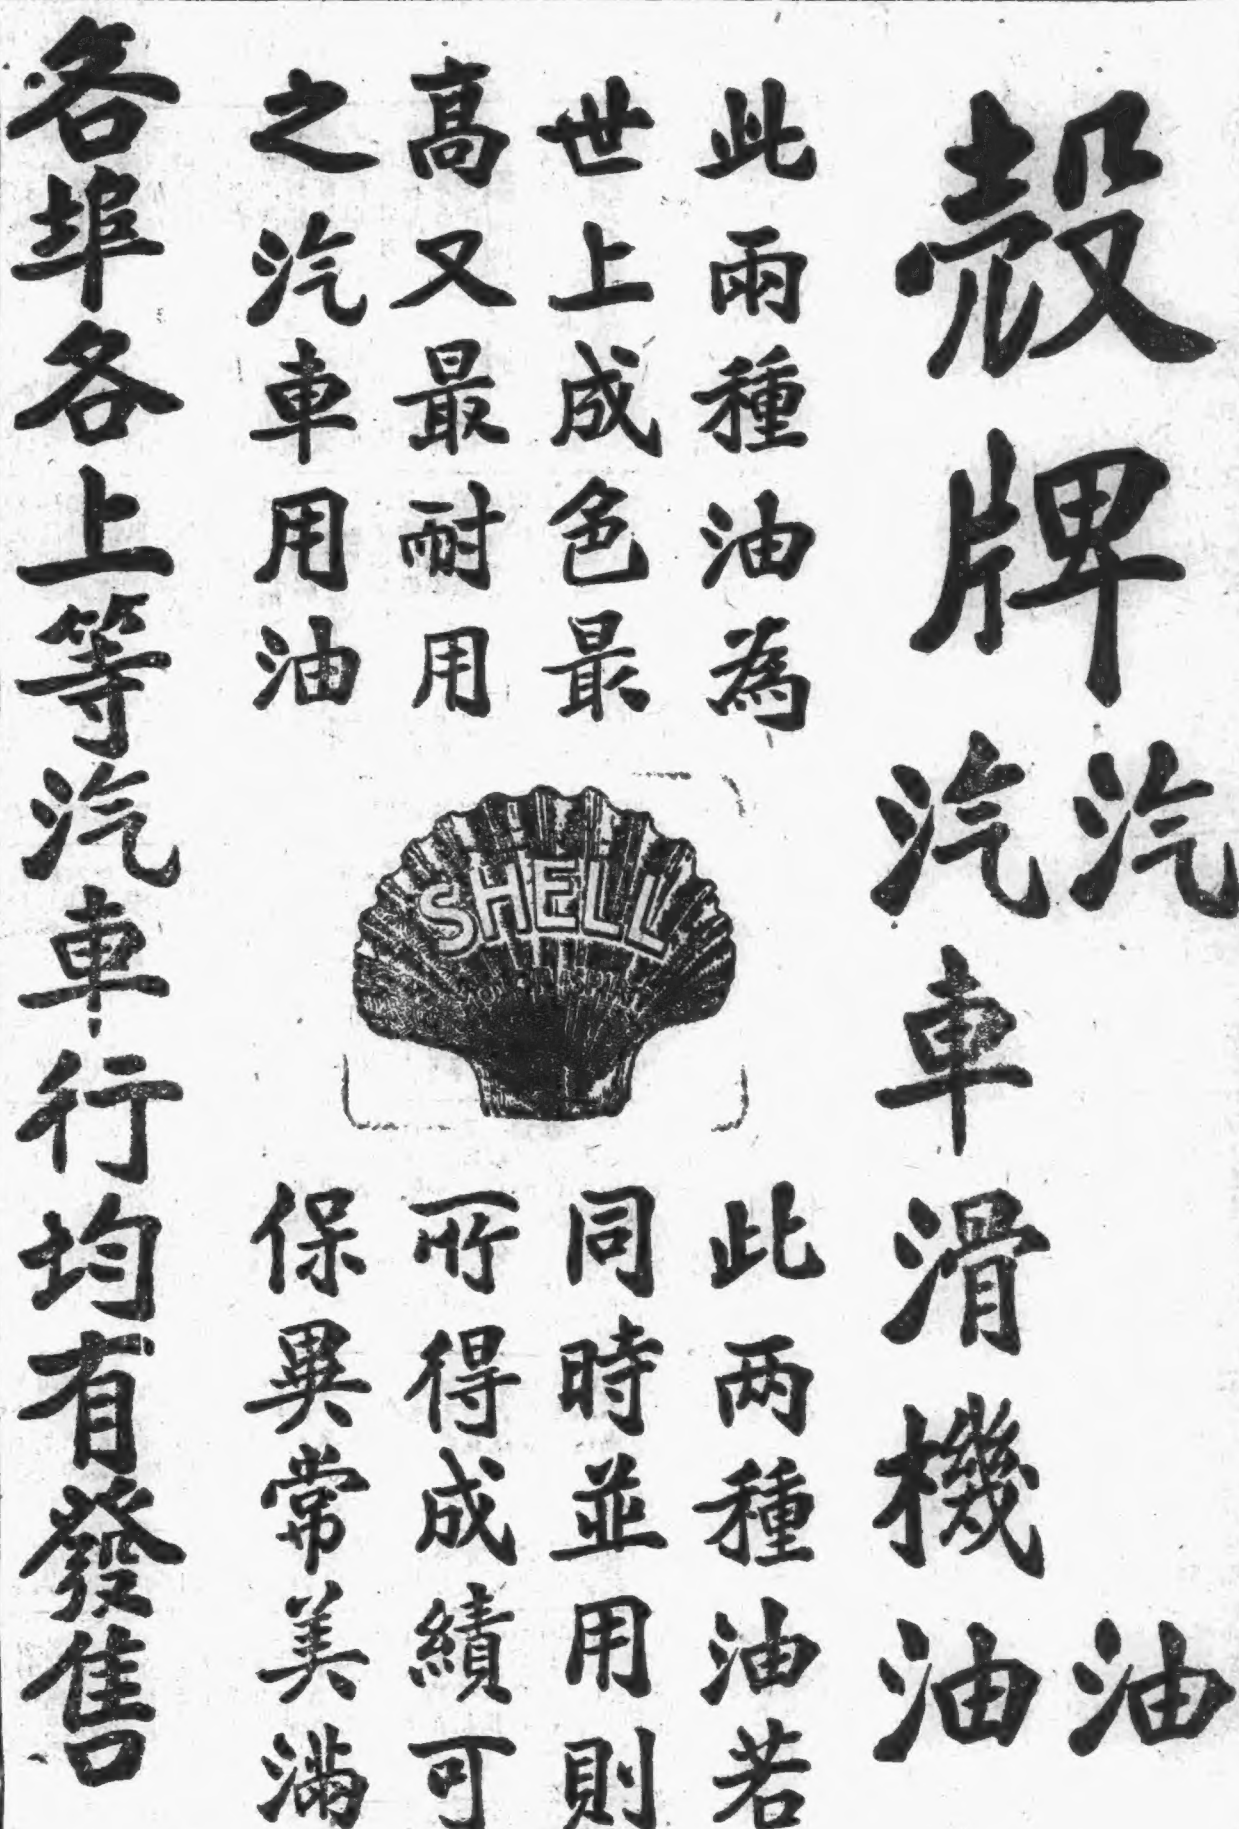 殼牌
汽油
汽車滑機油
此兩種油為
世上成色最
高又最耐用
之汽車用油
SHELL
此两種油若
同時並用則
所得成績可
保異常美滿
各埠各上等汽車行均有發售